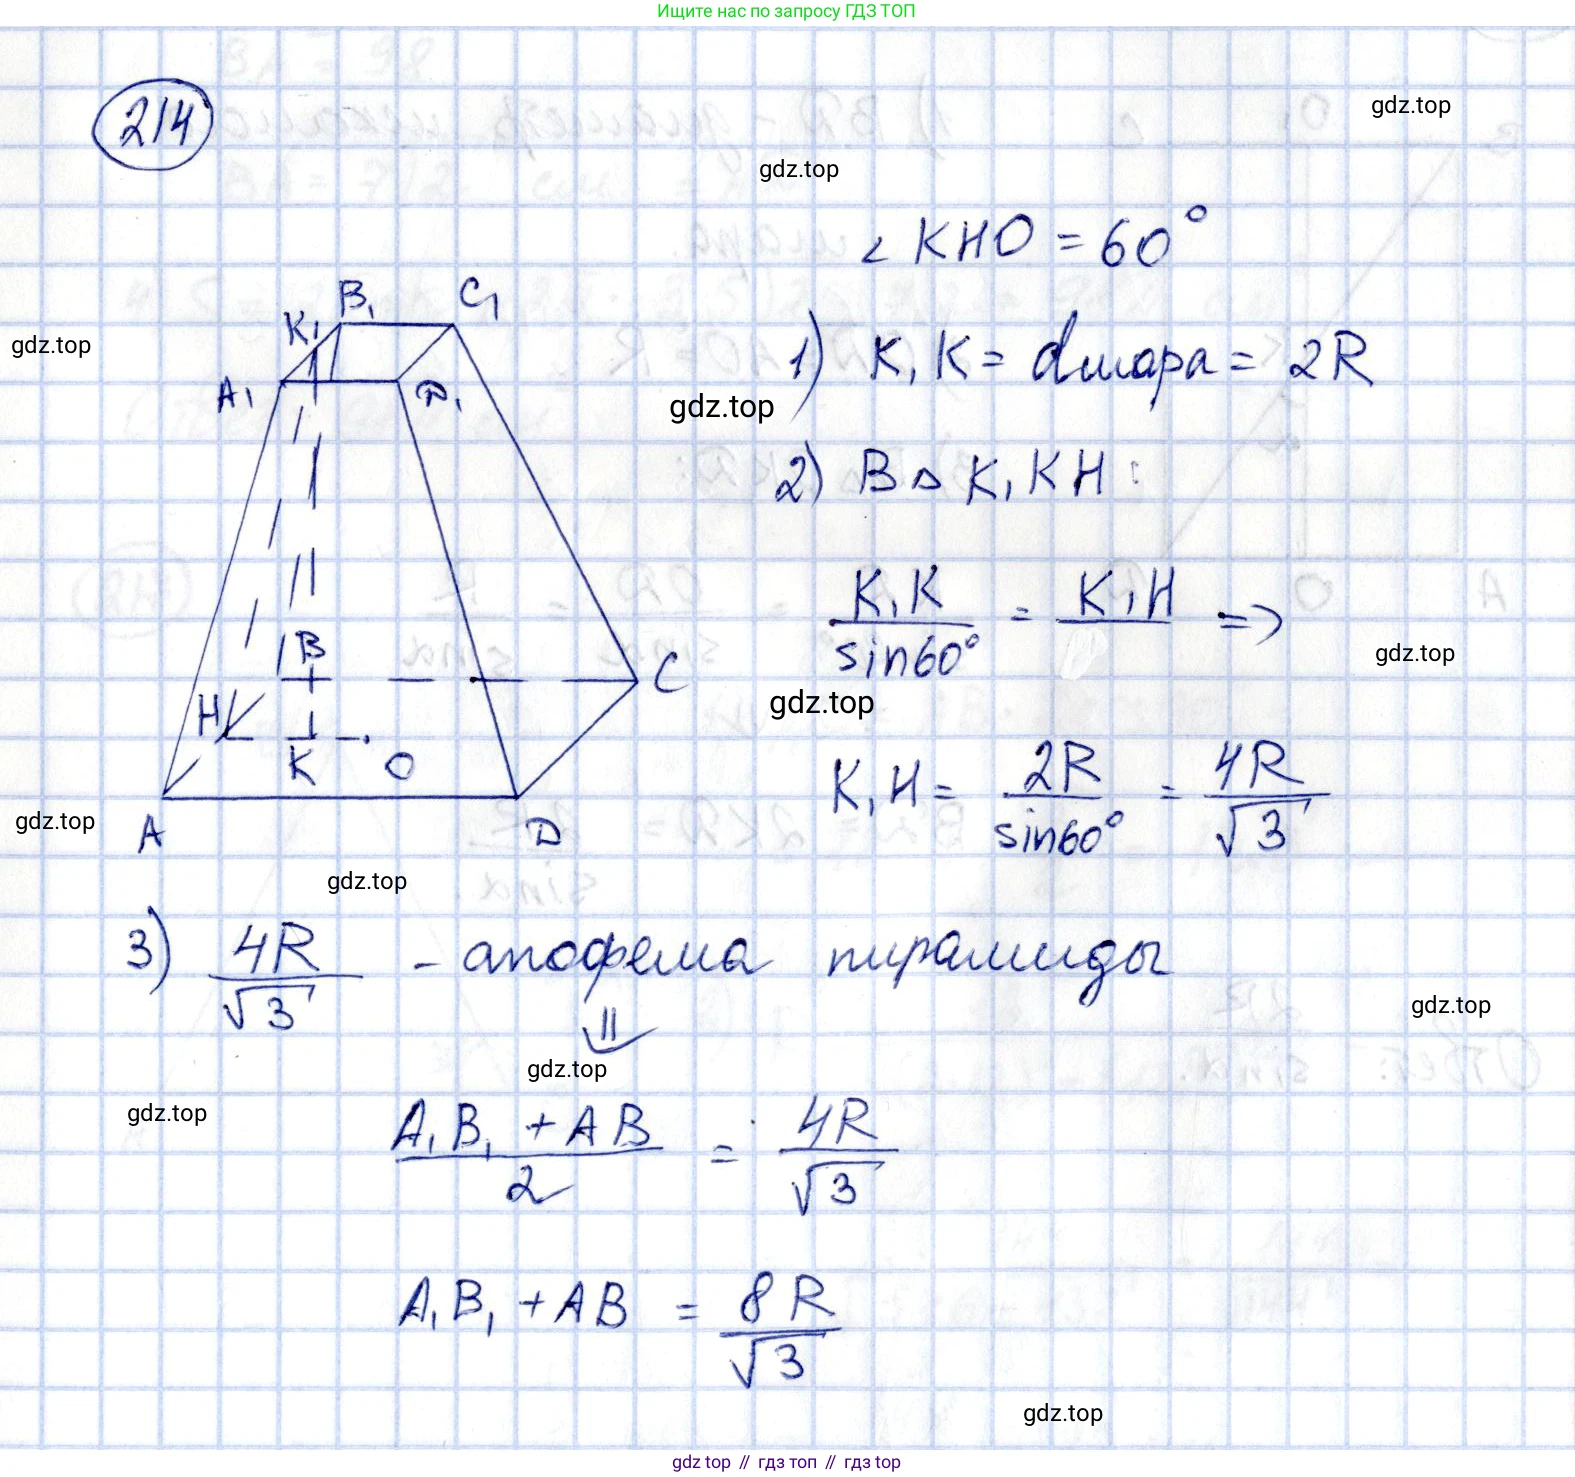 Ищите нас по запросу ГДЗ ТОП
214
gdz.top
gdz.top
∠ KHO = 60°
B₁ C₁
K₁
gdz.top
A₁ D₁
1) K₁K = dшара = 2R
gdz.top
2) В △ K₁KH:
K₁K / sin60° = K₁H ⇒
gdz.top
B
C
gdz.top
H
K O
K₁H = 2R / sin60° = 4R / √3
gdz.top
A D
gdz.top
3) 4R / √3 - апофема пирамиды
⇓
gdz.top
gdz.top
gdz.top
A₁B₁ + AB / 2 = 4R / √3
A₁B₁ + AB = 8R / √3
gdz.top
gdz top // гдз топ // гдз top